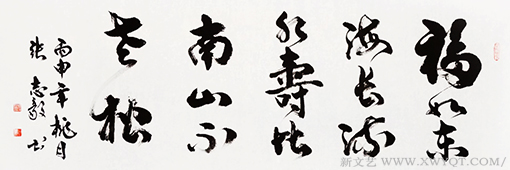 福如东
海长流
水寿比
南山不
老松
丙申年桃月
张志毅书
新文艺 WWW.XWYQT.COM